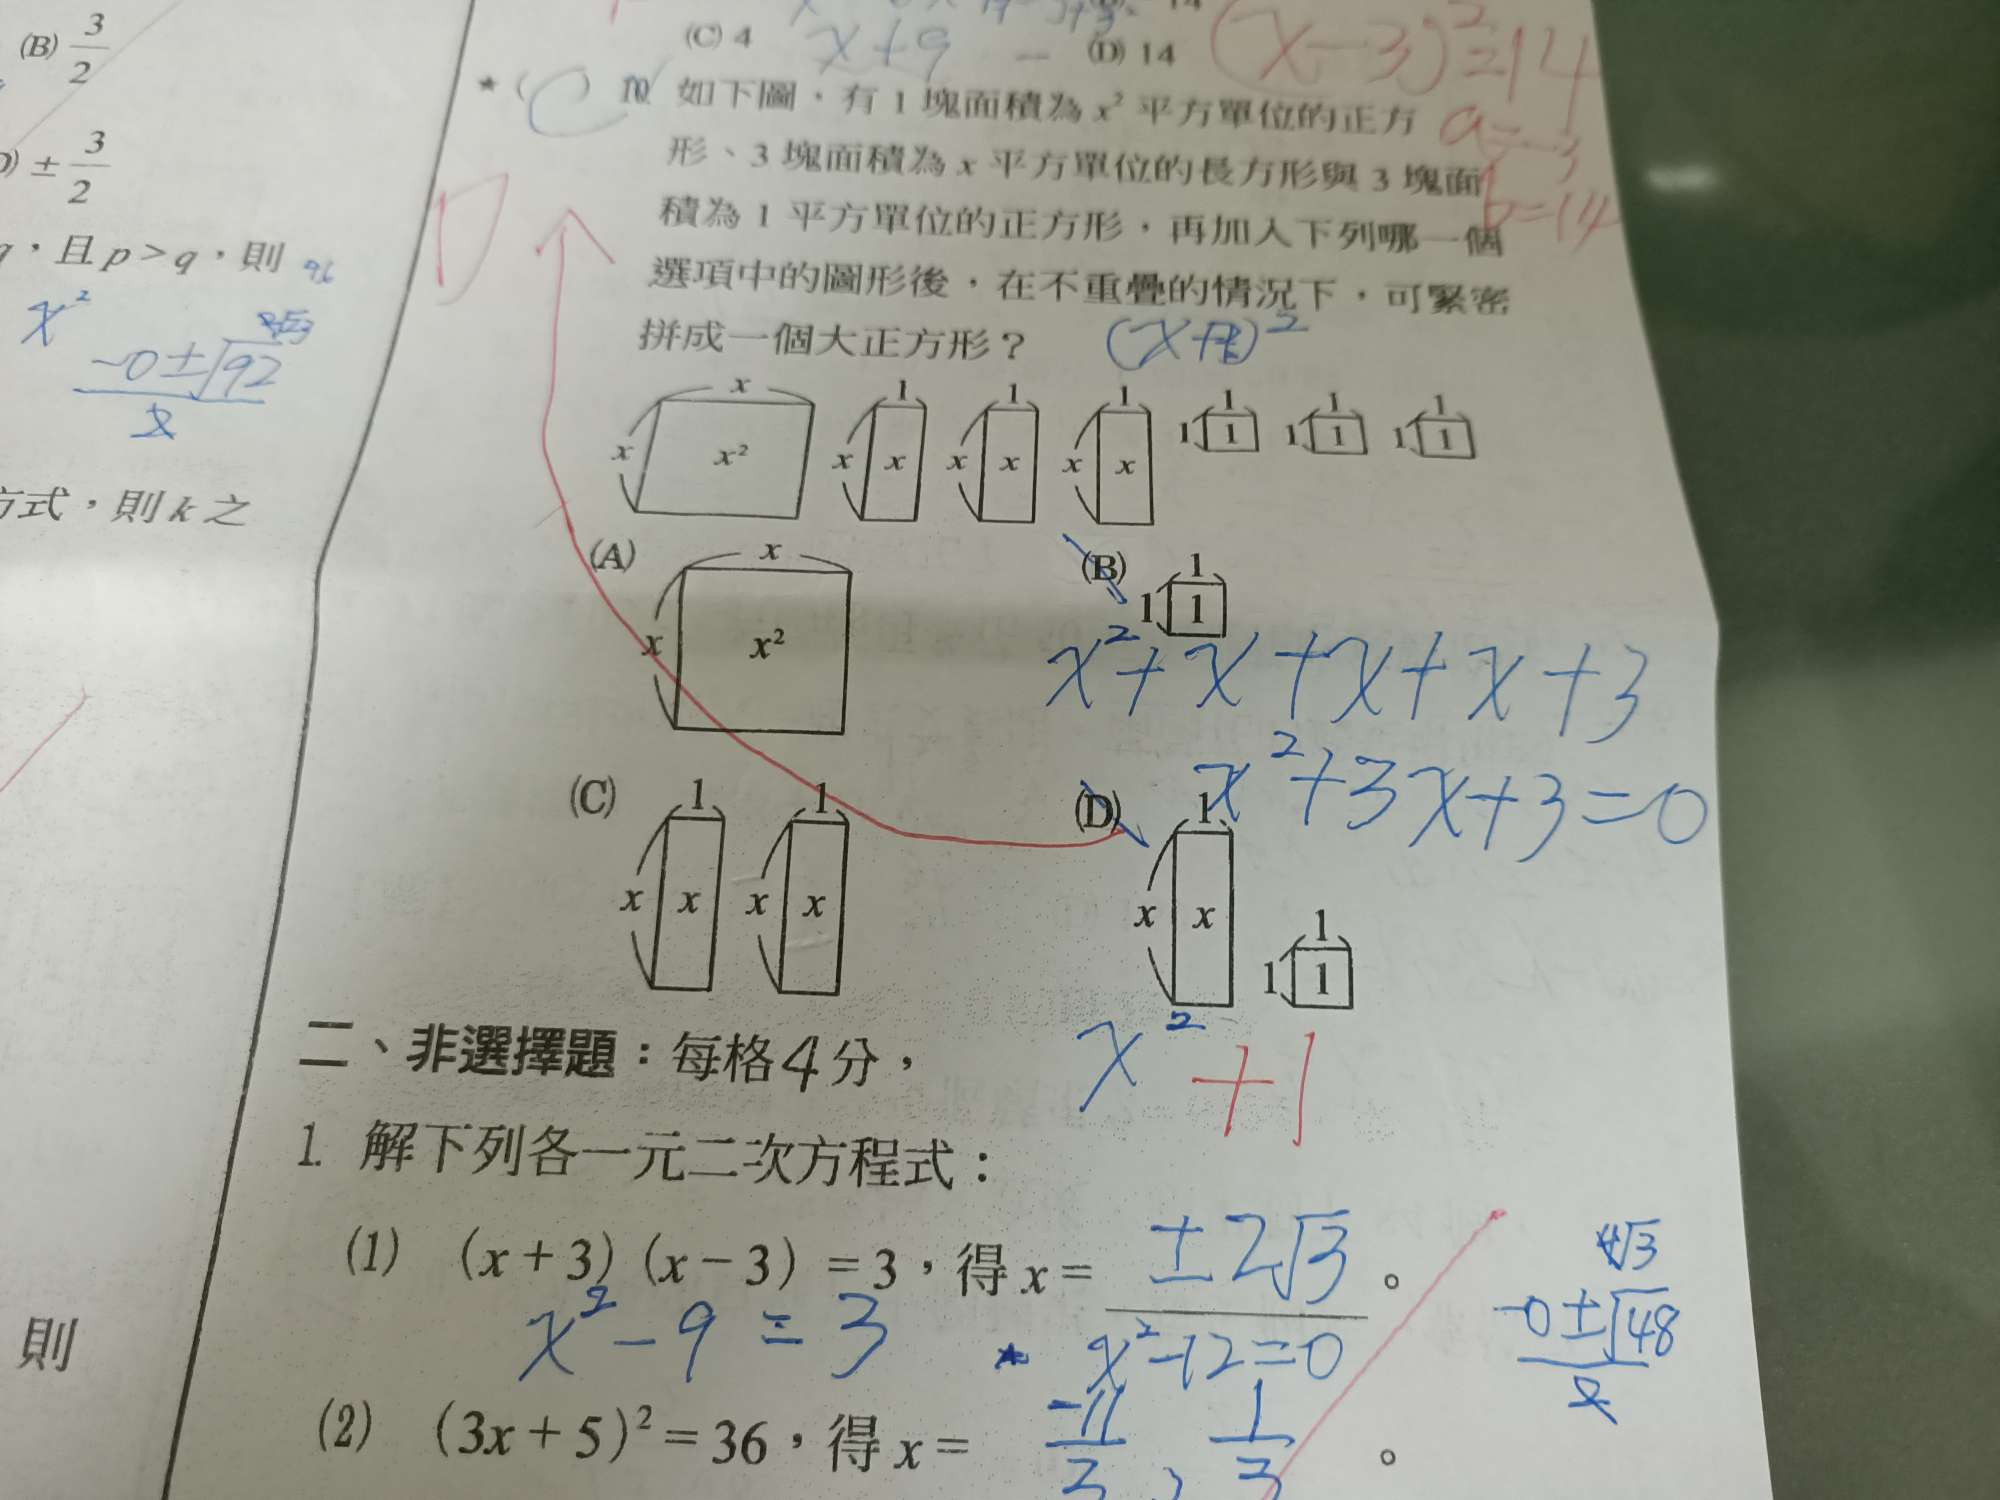 (B) 3/2
D) ± 3/2
q，且 p > q，則
x²
-0±√92
2
方式，則 k 之
則
(C) 4
x+9
(D) 14
(x-3)²=14
a=-3
b=14
D
★ ( C ) 10. 如下圖，有 1 塊面積為 x² 平方單位的正方
形、3 塊面積為 x 平方單位的長方形與 3 塊面
積為 1 平方單位的正方形，再加入下列哪一個
選項中的圖形後，在不重疊的情況下，可緊密
拼成一個大正方形？
x 1 1 1 1 1 1
x x² x x x x x x 1 1 1 1 1 1
(A) x
x x²
(B) 1
1 1
x²+x+x+x+3
x²+3x+3=0
(C) 1 1
x x x x
(D) 1
x x
1
1 1
x² +1
二、非選擇題：每格4分，
1. 解下列各一元二次方程式：
(1) (x+3)(x-3)=3，得 x= ±2√3 。
x²-9=3
★ x²-12=0
4√3
-0±√48
2
(2) (3x+5)²=36，得 x= -11/3 , 1/3 。